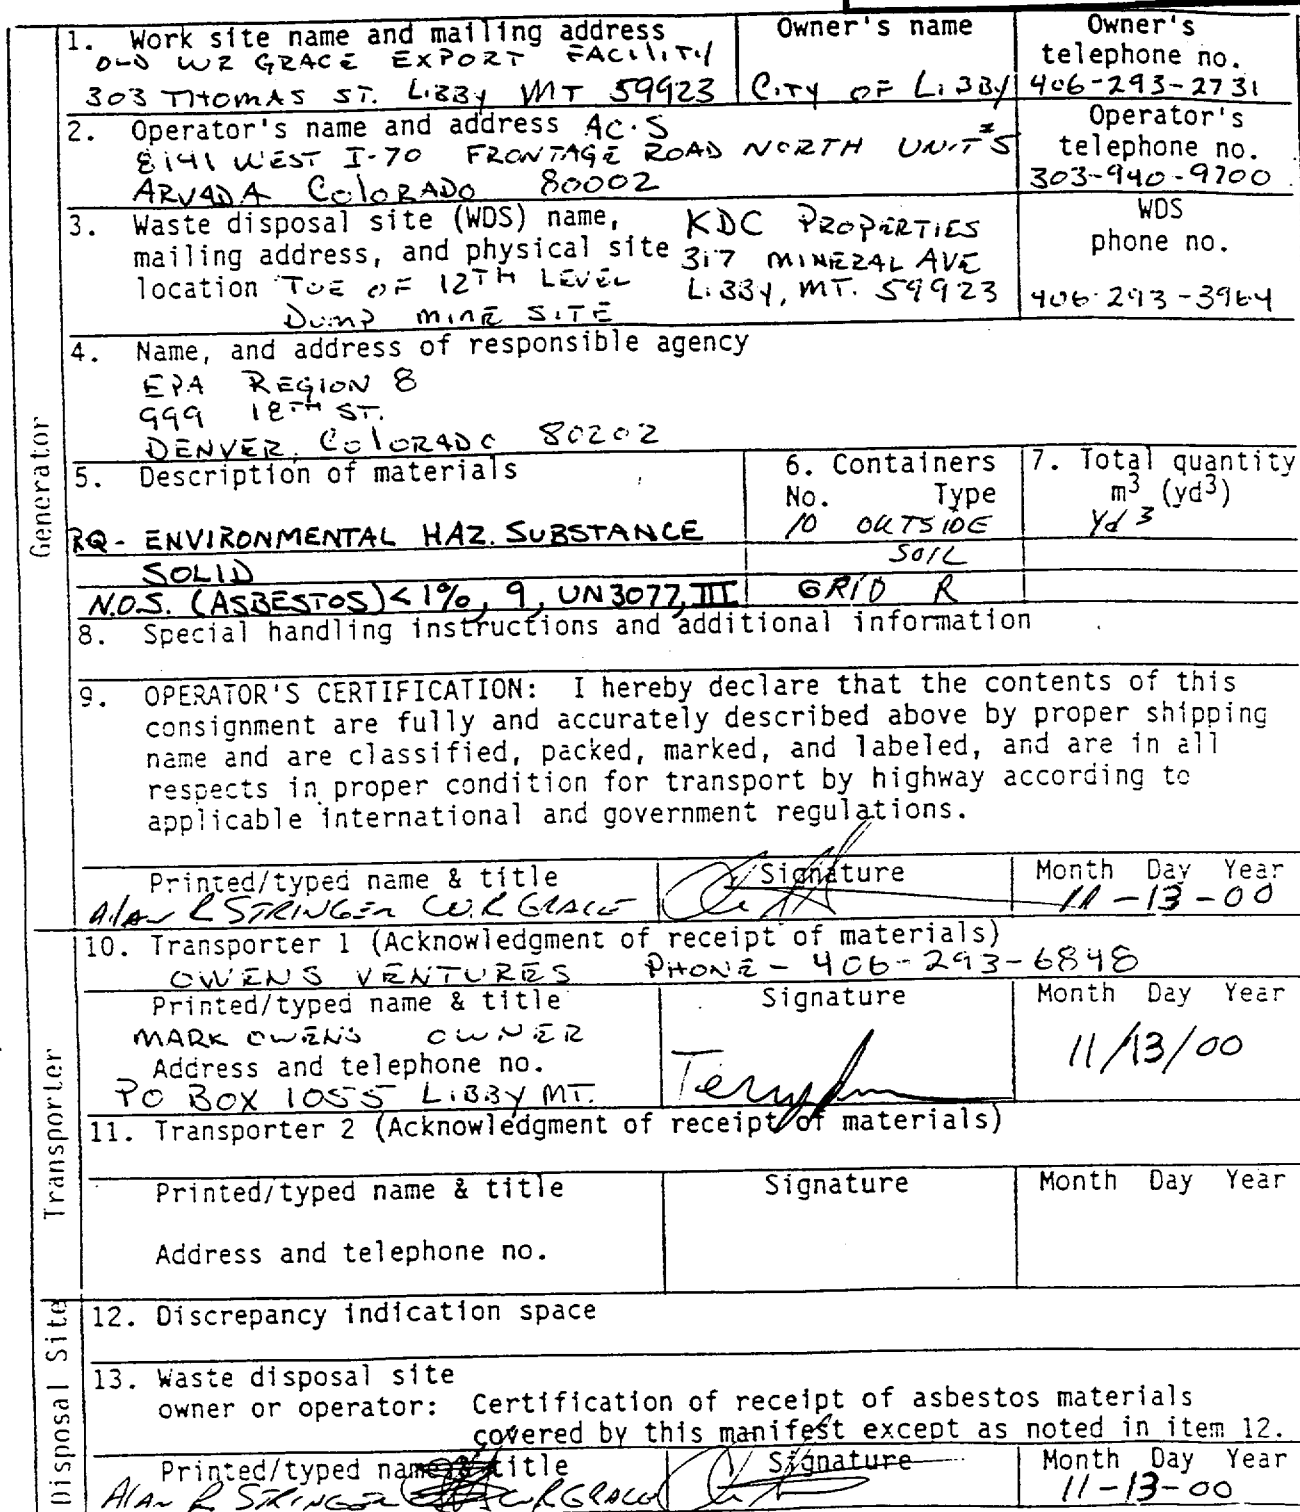 1. Work site name and mailing address
OLD WR GRACE EXPORT FACILITY
303 THOMAS ST. LIBBY MT 59923
Owner's name
CITY OF LIBBY
Owner's
telephone no.
406-293-2731
2. Operator's name and address AC·S
8141 WEST I-70 FRONTAGE ROAD NORTH UNIT #5
ARVADA COLORADO 80002
Operator's
telephone no.
303-940-9700
3. Waste disposal site (WDS) name, KDC PROPERTIES
mailing address, and physical site 317 MINERAL AVE
location TOE OF 12TH LEVEL LIBBY, MT. 59923
DUMP MINE SITE
WDS
phone no.
406-293-3964
4. Name, and address of responsible agency
EPA REGION 8
999 18TH ST.
DENVER, COLORADO 80202
Generator
5. Description of materials
6. Containers
No. Type
7. Total quantity
m3 (yd3)
RQ - ENVIRONMENTAL HAZ. SUBSTANCE
10 OUTSIDE
Yd3
SOLID
SOIL
N.O.S. (ASBESTOS) < 1%, 9, UN3077, III
GRID R
8. Special handling instructions and additional information
9. OPERATOR'S CERTIFICATION: I hereby declare that the contents of this
consignment are fully and accurately described above by proper shipping
name and are classified, packed, marked, and labeled, and are in all
respects in proper condition for transport by highway according to
applicable international and government regulations.
Printed/typed name & title
Alan R STRINGER W.R GRACE
Signature
Month Day Year
11-13-00
10. Transporter 1 (Acknowledgment of receipt of materials)
OWENS VENTURES PHONE - 406-293-6848
Printed/typed name & title
MARK OWENS OWNER
Address and telephone no.
PO BOX 1055 LIBBY MT.
Signature
Terry
Month Day Year
11/13/00
Transporter
11. Transporter 2 (Acknowledgment of receipt of materials)
Printed/typed name & title
Signature
Month Day Year
Address and telephone no.
Disposal Site
12. Discrepancy indication space
13. Waste disposal site
owner or operator: Certification of receipt of asbestos materials
covered by this manifest except as noted in item 12.
Printed/typed name & title
Alan R STRINGER WRGRACE
Signature
Month Day Year
11-13-00